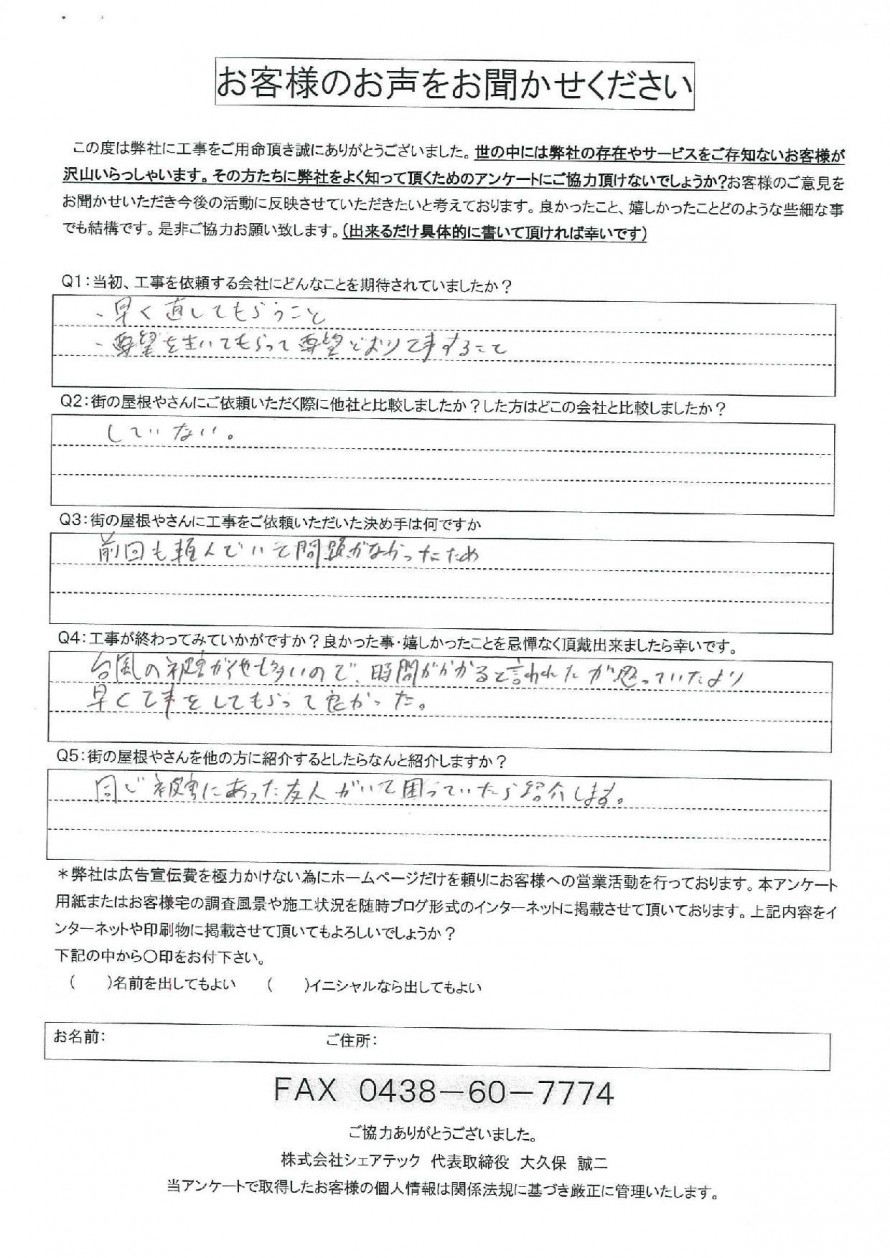 お客様のお声をお聞かせください
この度は弊社に工事をご用命頂き誠にありがとうございました。世の中には弊社の存在やサービスをご存知ないお客様が
沢山いらっしゃいます。その方たちに弊社をよく知って頂くためのアンケートにご協力頂けないでしょうか?お客様のご意見を
お聞かせいただき今後の活動に反映させていただきたいと考えております。良かったこと、嬉しかったことどのような些細な事
でも結構です。是非ご協力お願い致します。(出来るだけ具体的に書いて頂ければ幸いです)
Q1:当初、工事を依頼する会社にどんなことを期待されていましたか?
、早く直してもらうこと
、要望を きいてもらって要望どおり工事すること
Q2:街の屋根やさんにご依頼いただく際に他社と比較しましたか?した方はどこの会社と比較しましたか?
していない。
Q3:街の屋根やさんに工事をご依頼いただいた決め手は何ですか
前回も頼んでいて問題がなかったため
Q4:工事が終わってみていかがですか?良かった事・嬉しかったことを忌憚なく頂戴出来ましたら幸いです。
台風の被害が も多いので、時間がかかると言われたが思っていたより
早く工事をしてもらって良かった。
Q5:街の屋根やさんを他の方に紹介するとしたらなんと紹介しますか?
同じ被害にあった友人がいて困っていたら紹介します。
*弊社は広告宣伝費を極力かけない為にホームページだけを頼りにお客様への営業活動を行っております。本アンケート
用紙またはお客様宅の調査風景や施工状況を随時ブログ形式のインターネットに掲載させて頂いております。上記内容をイ
ンターネットや印刷物に掲載させて頂いてもよろしいでしょうか?
下記の中から〇印をお付下さい。
( )名前を出してもよい ( )イニシャルなら出してもよい
お名前: ご住所:
FAX 0438-60-7774
ご協力ありがとうございました。
株式会社シェアテック 代表取締役 大久保 誠二
当アンケートで取得したお客様の個人情報は関係法規に基づき厳正に管理いたします。